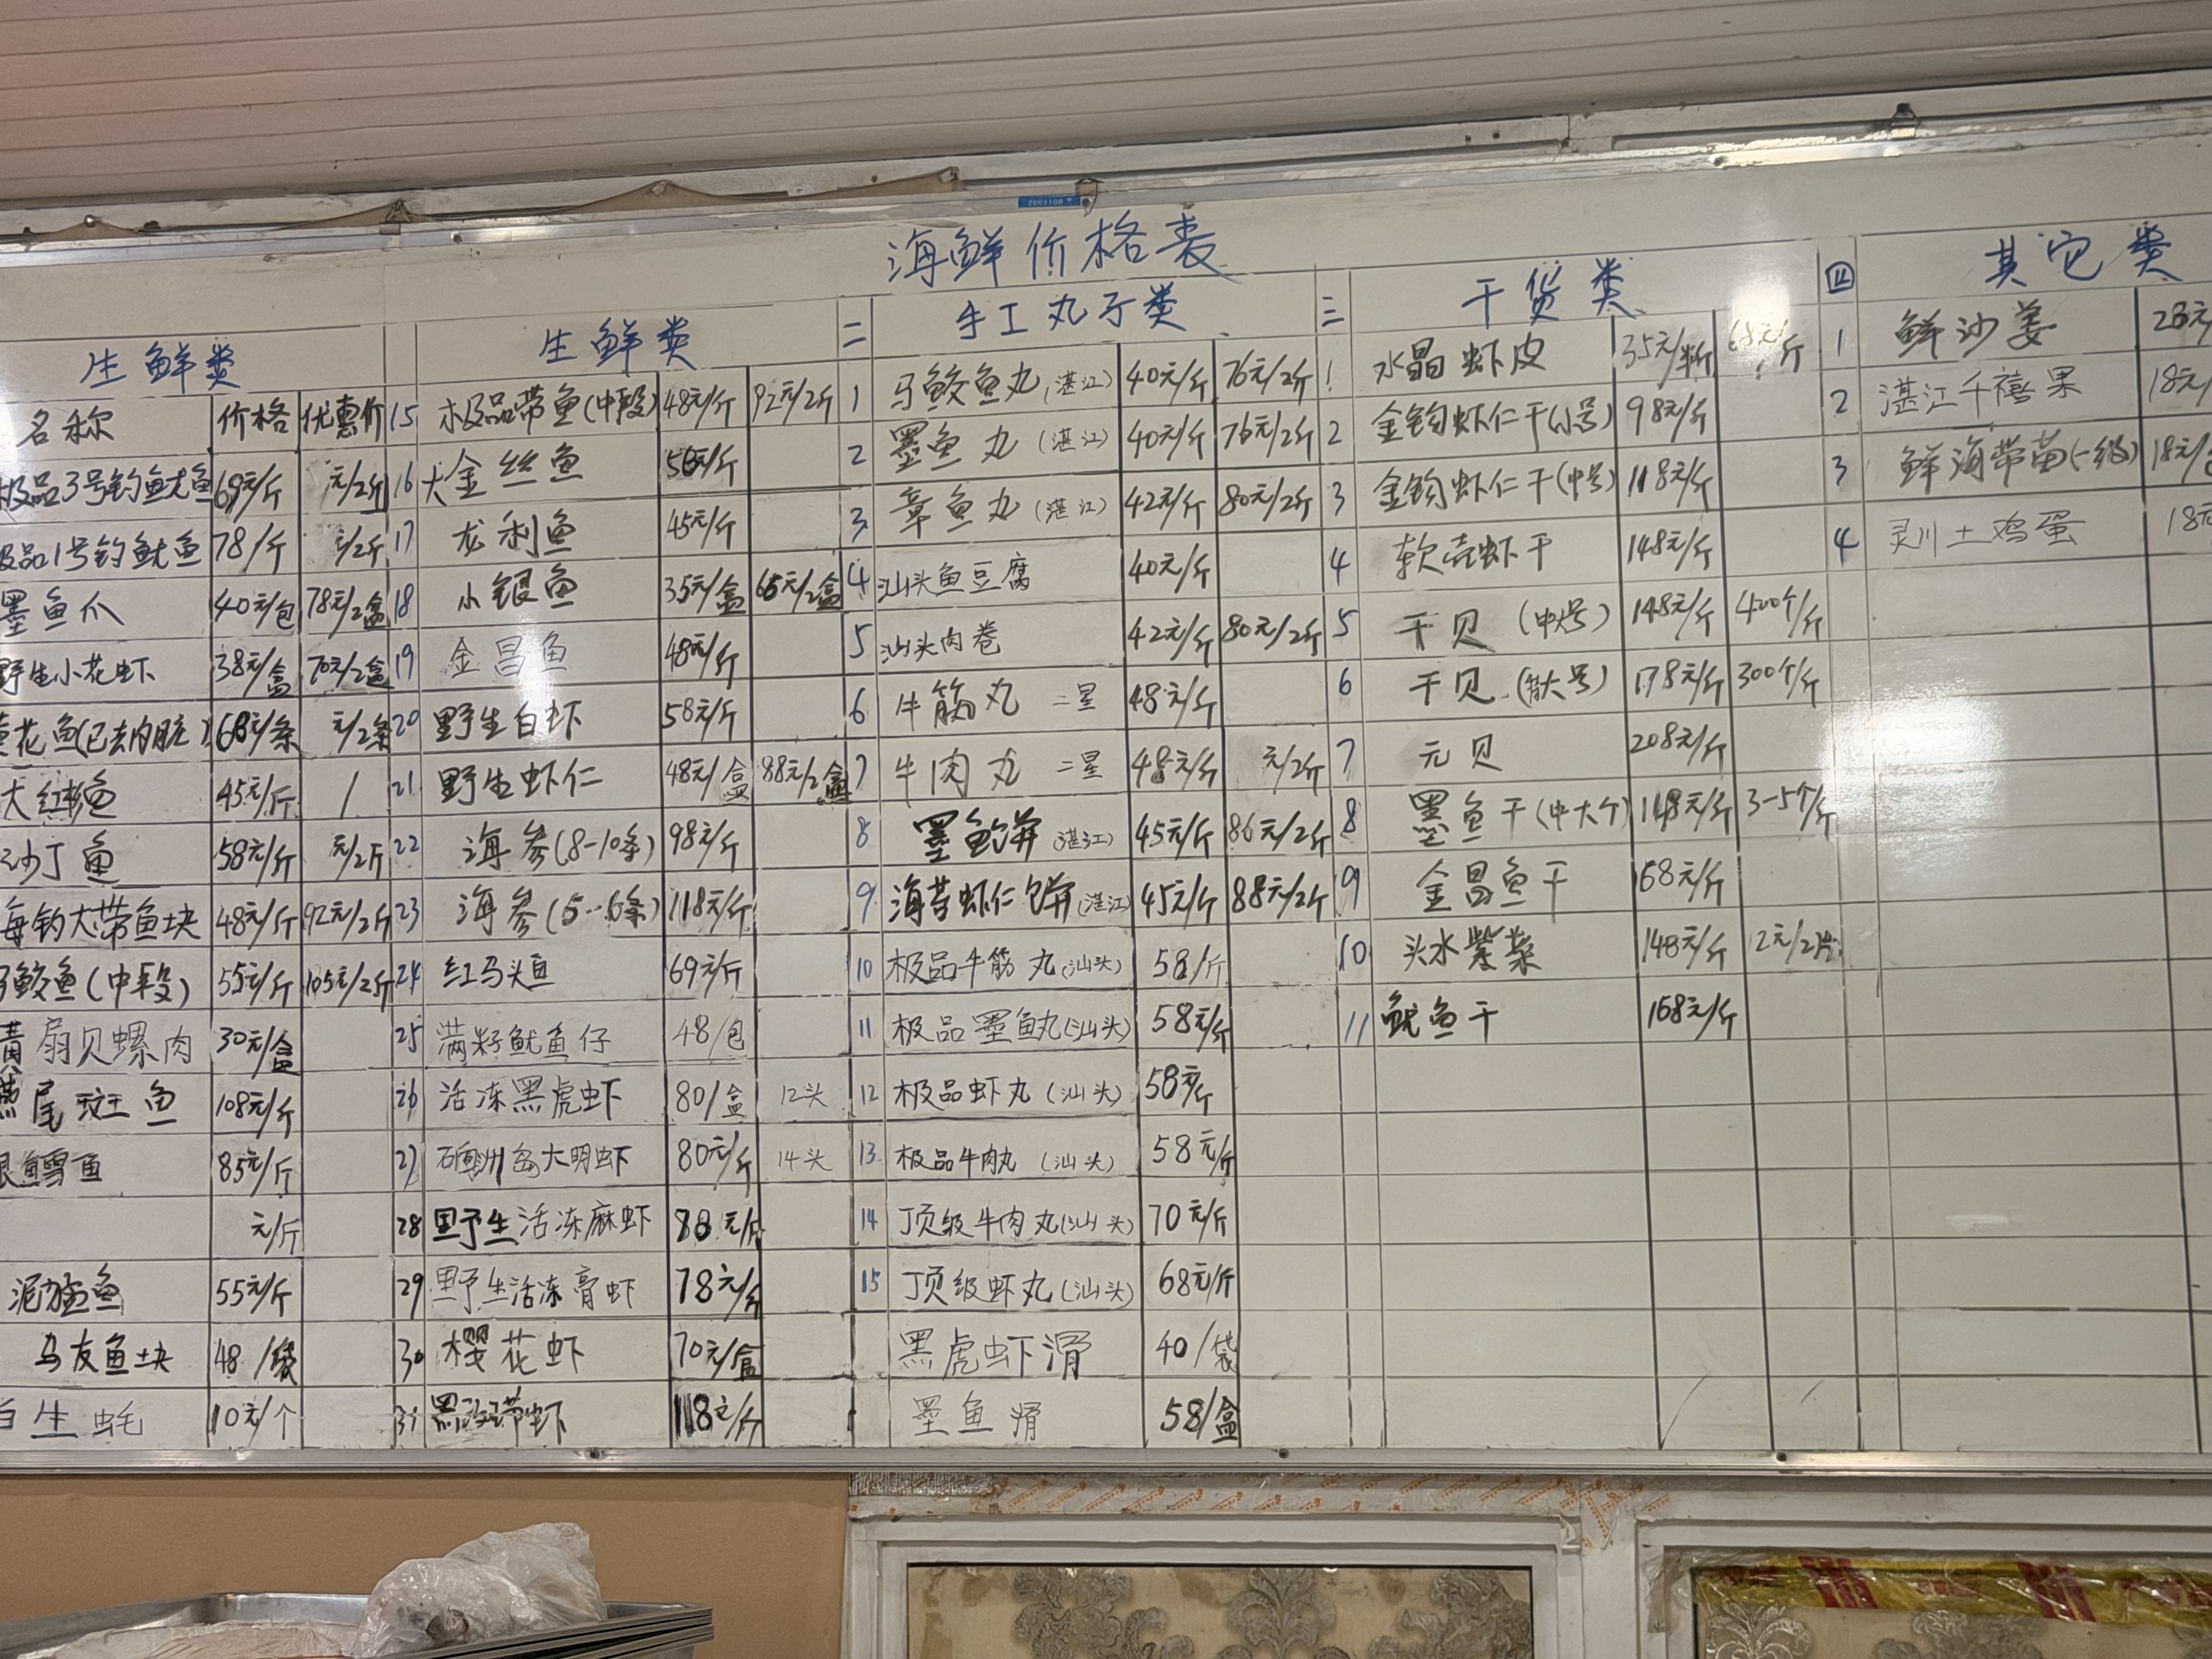 海鲜价格表
生鲜类
名称 价格 优惠价
极品3号钓鱿鱼 69元/斤 元/2斤
极品1号钓鱿鱼 78/斤 元/2斤
墨鱼爪 40元/包 78元/2盒
野生小花虾 38元/盒 70元/2盒
花鱼(已去内脏) 68元/条 元/2条
大红鱼 45元/斤 /
沙丁鱼 58元/斤 元/2斤
海钓大带鱼块 48元/斤 92元/2斤
马鲛鱼(中段) 55元/斤 105元/2斤
黄扇贝螺肉 30元/盒
燕尾斑鱼 108元/斤
银鳕鱼 85元/斤
元/斤
泥猛鱼 55元/斤
马友鱼块 48/袋
生蚝 10元/个
生鲜类
15 极品带鱼(中段) 48元/斤 92元/2斤
16 大金丝鱼 元/斤
17 龙利鱼 45元/斤
18 小银鱼 35元/盒 65元/2盒
19 金昌鱼 48元/斤
20 野生白虾 58元/斤
21 野生虾仁 48元/盒 88元/2盒
22 海参(8-10条) 98元/斤
23 海参(5-6条) 118元/斤
24 红马头鱼 69元/斤
25 满籽鱿鱼仔 48/包
26 活冻黑虎虾 80/盒 12头
27 硇洲岛大明虾 80元/斤 14头
28 野生活冻麻虾 88元/斤
29 野生活冻膏虾 78元/斤
30 樱花虾 70元/盒
31 黑 带虾 118元/斤
二 手工丸子类
1 马鲛鱼丸(湛江) 40元/斤 76元/2斤
2 墨鱼丸(湛江) 40元/斤 76元/2斤
3 章鱼丸(湛江) 42元/斤 80元/2斤
4 汕头鱼豆腐 40元/斤
5 汕头肉卷 42元/斤 80元/2斤
6 牛筋丸 二星 48元/斤
7 牛肉丸 二星 48元/斤 元/2斤
8 墨鱼饼(湛江) 45元/斤 86元/2斤
9 海苔虾仁饼(湛江) 45元/斤 88元/2斤
10 极品牛筋丸(汕头) 58/斤
11 极品墨鱼丸(汕头) 58元/斤
12 极品虾丸(汕头) 58元/斤
13 极品牛肉丸(汕头) 58元/斤
14 顶级牛肉丸(汕头) 70元/斤
15 顶级虾丸(汕头) 68元/斤
黑虎虾滑 40/袋
墨鱼滑 58/盒
三 干货类
1 水晶虾皮 35元/半斤 68元/斤
2 金钩虾仁干(小号) 98元/斤
3 金钩虾仁干(中号) 118元/斤
4 软壳虾干 148元/斤
5 干贝(中号) 148元/斤 420个/斤
6 干贝(大号) 178元/斤 300个/斤
7 元贝 208元/斤
8 墨鱼干(中大个) 148元/斤 3-5个/斤
9 金昌鱼干 68元/斤
10 头水紫菜 148元/斤 12元/2片
11 鱿鱼干 168元/斤
四 其它类
1 鲜沙姜 28元
2 湛江千禧果 18元/
3 鲜海带苗(一级) 18元/
4 灵川土鸡蛋 18元